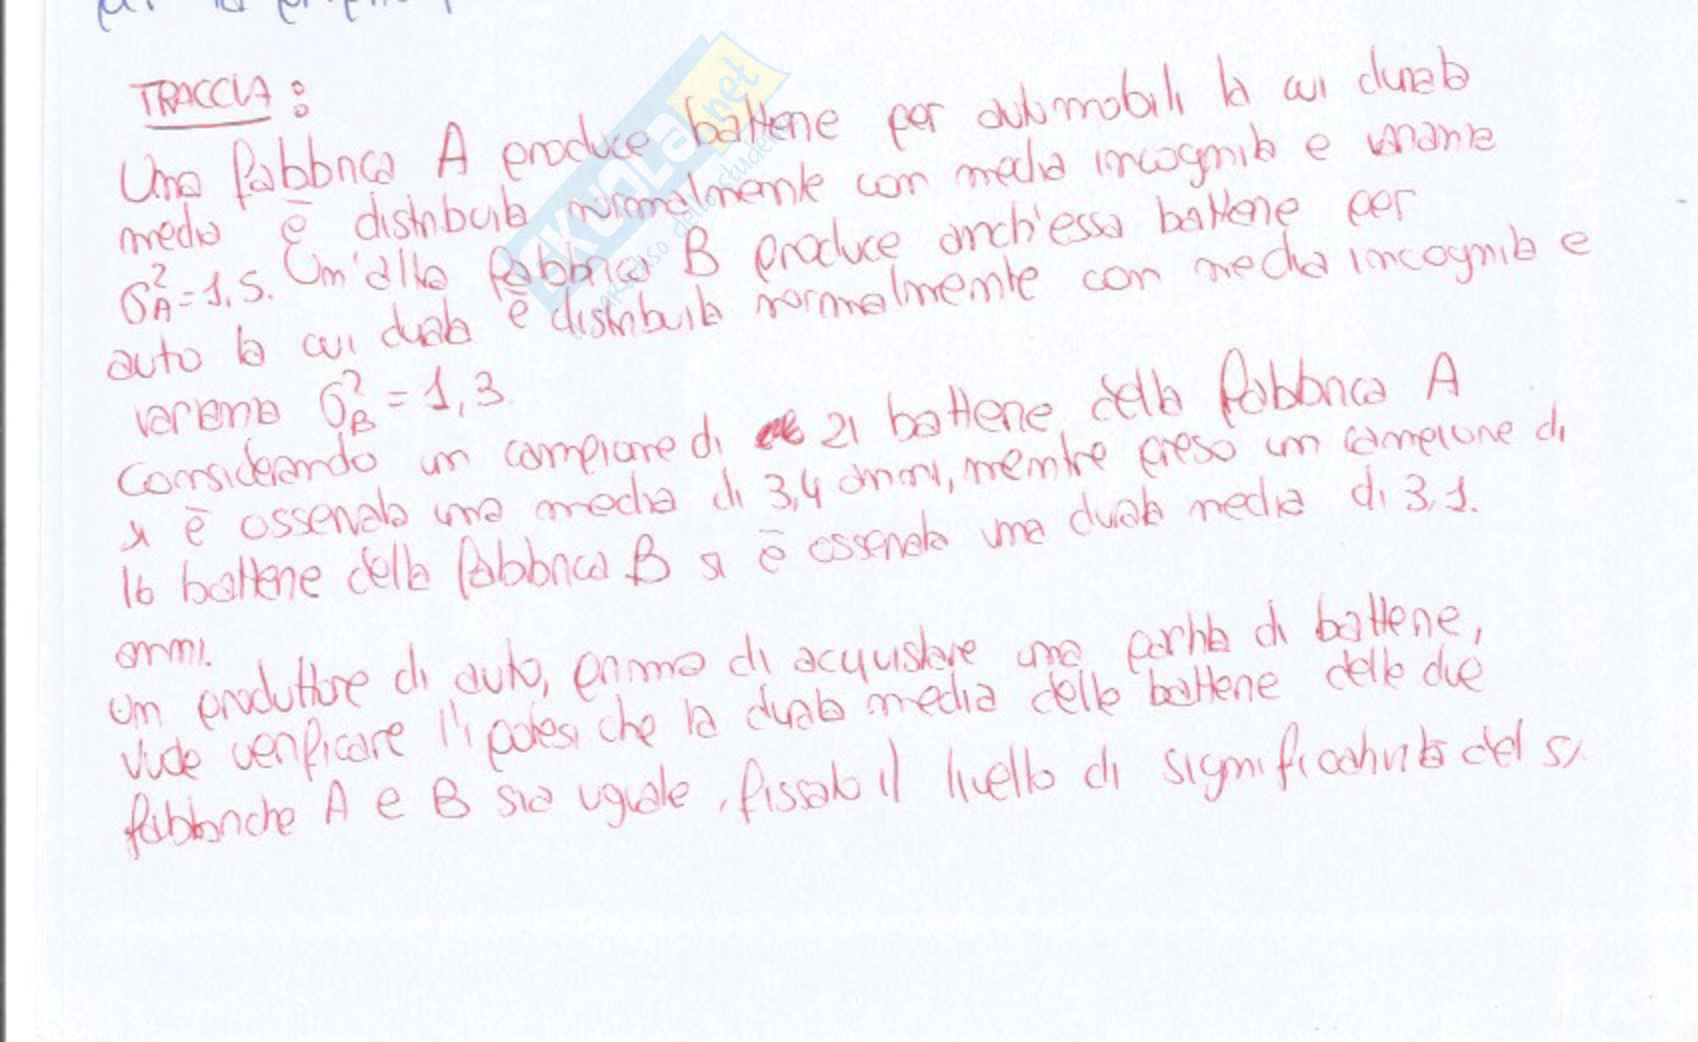 TRACCIA :
Una fabbrica A produce batterie per automobili la cui durata
media è distribuita normalmente con media incognita e varianza
σ²A = 1,5. Un'altra fabbrica B produce anch'essa batterie per
auto la cui durata è distribuita normalmente con media incognita e
varianza σ²B = 1,3
Considerando un campione di 21 batterie della fabbrica A
si è osservata una media di 3,4 anni, mentre preso un campione di
16 batterie della fabbrica B si è osservata una durata media di 3,1.
anni.
Un produttore di auto, prima di acquistare una partita di batterie,
vuole verificare l'ipotesi che la durata media delle batterie delle due
fabbriche A e B sia uguale, fissato il livello di significatività del 5%.
SKUOLA.net